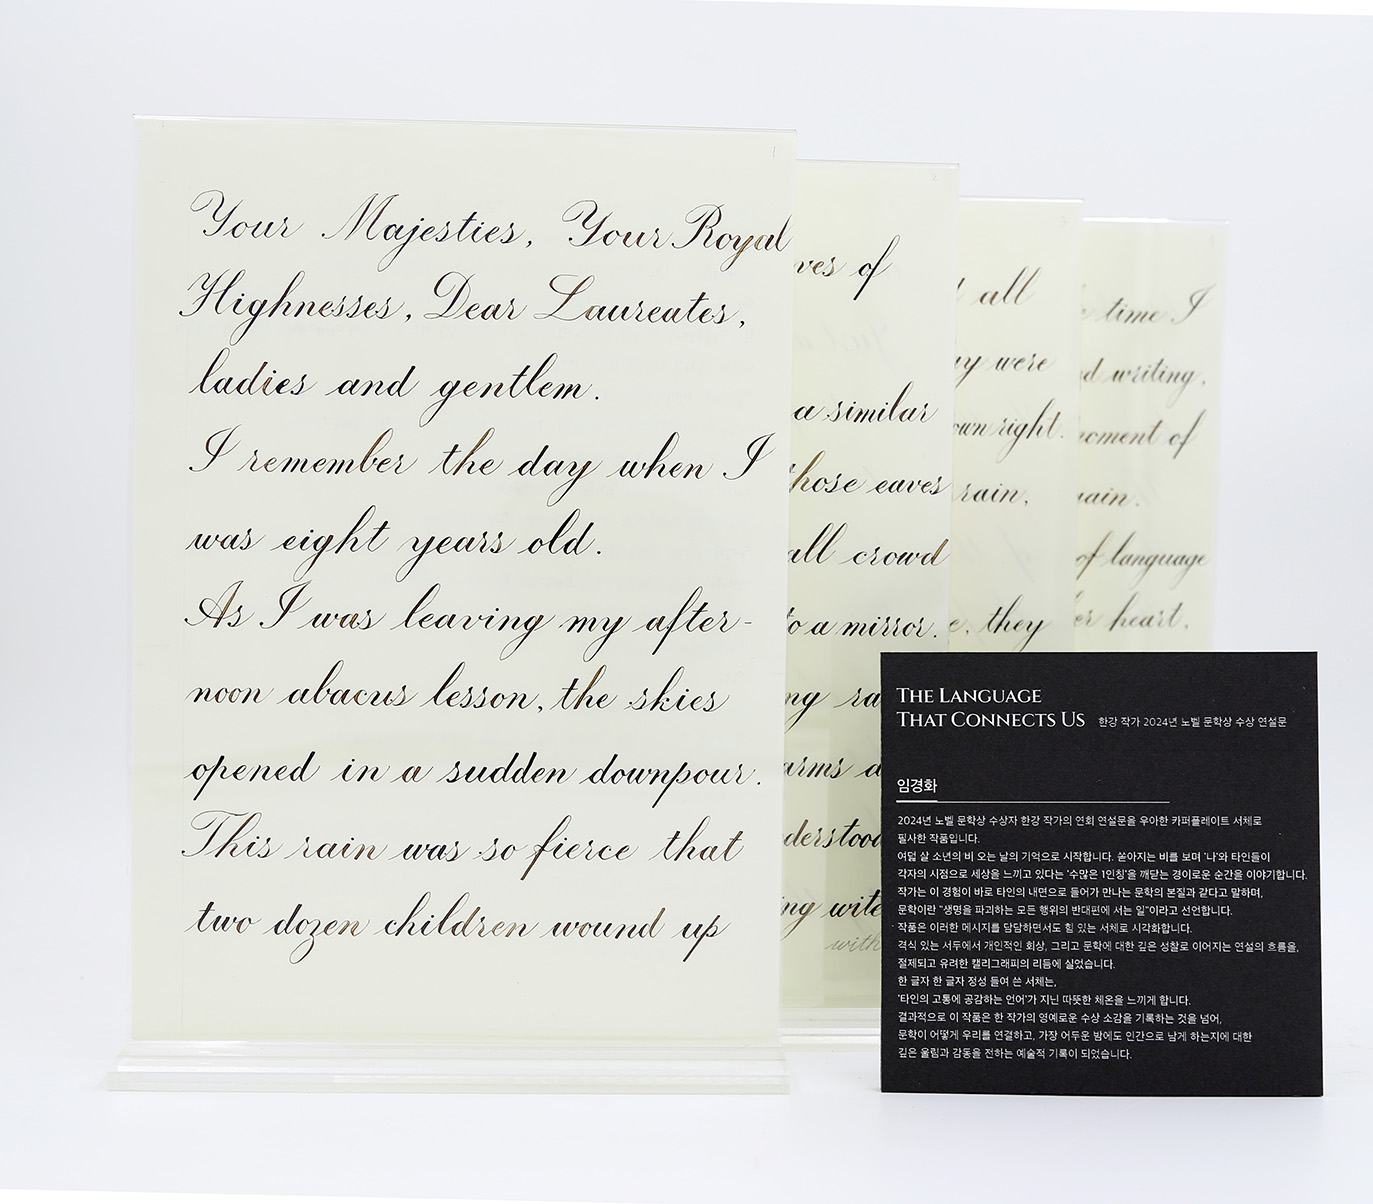 1
Your Majesties, Your Royal
Highnesses, Dear Laureates,
ladies and gentlem.
I remember the day when I
was eight years old.
As I was leaving my after-
noon abacus lesson, the skies
opened in a sudden downpour.
This rain was so fierce that
two dozen children wound up
2
ves of
a similar
those eaves
all crowd
to a mirror.
ng ra
arms a
derstood
ng witn
with
3
all
ay were
own right.
rain,
e, they
time I
d writing,
moment of
rain.
of language
er heart.
THE LANGUAGE
THAT CONNECTS US 한강 작가 2024년 노벨 문학상 수상 연설문
임경화
2024년 노벨 문학상 수상자 한강 작가의 연회 연설문을 우아한 카퍼플레이트 서체로
필사한 작품입니다.
여덟 살 소년의 비 오는 날의 기억으로 시작합니다. 쏟아지는 비를 보며 '나'와 타인들이
각자의 시점으로 세상을 느끼고 있다는 '수많은 1인칭'을 깨닫는 경이로운 순간을 이야기합니다.
작가는 이 경험이 바로 타인의 내면으로 들어가 만나는 문학의 본질과 같다고 말하며,
문학이란 "생명을 파괴하는 모든 행위의 반대편에 서는 일"이라고 선언합니다.
작품은 이러한 메시지를 담담하면서도 힘 있는 서체로 시각화합니다.
격식 있는 서두에서 개인적인 회상, 그리고 문학에 대한 깊은 성찰로 이어지는 연설의 흐름을,
절제되고 유려한 캘리그래피의 리듬에 실었습니다.
한 글자 한 글자 정성 들여 쓴 서체는,
'타인의 고통에 공감하는 언어'가 지닌 따뜻한 체온을 느끼게 합니다.
결과적으로 이 작품은 한 작가의 영예로운 수상 소감을 기록하는 것을 넘어,
문학이 어떻게 우리를 연결하고, 가장 어두운 밤에도 인간으로 남게 하는지에 대한
깊은 울림과 감동을 전하는 예술적 기록이 되었습니다.